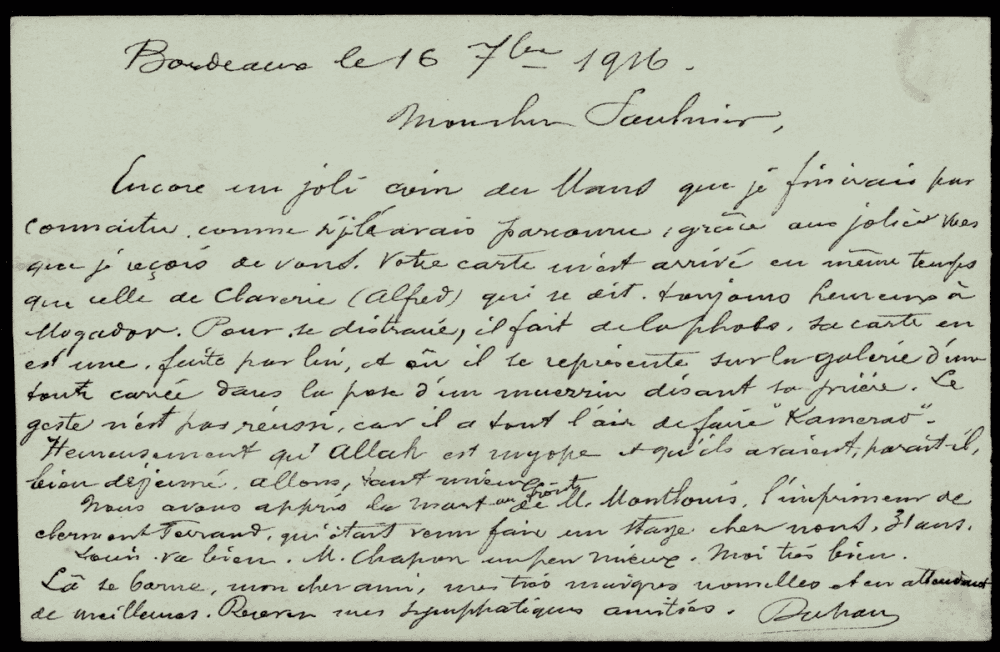 Bordeaux le 16 7bre 1916.
Mon cher Saulnier,
Encore un joli coin du Mans que je finirais par
connaitre comme si je l'avais parcouru, grâce aux jolies vues
que je reçois de vous. Votre carte m'est arrivé en même temps
que celle de Claverie (Alfred) qui se dit toujours heureux à
Mogador. Pour se distraire, il fait de la photo. Sa carte en
est une, faite par lui, et où il se représente sur la galerie d'une
tour carrée dans la pose d'un muezzin disant sa prière. Le
geste n'est pas réussi, car il a tout l'air de faire "Kamerad".
Heureusement qu'Allah est myope et qu'ils avaient, parait-il,
bien déjeuné. Allons, tant mieux.
Nous avons appris la mort au front de M. Montlouis, l'imprimeur de
Clermont Ferrand, qui était venu faire un stage chez nous, 31 ans.
Louis va bien. M. Chapon un peu mieux. Moi très bien.
Là se borne, mon cher ami, mes très maigres nouvelles et en attendant
de meilleures. Recevez mes sympathiques amitiés.